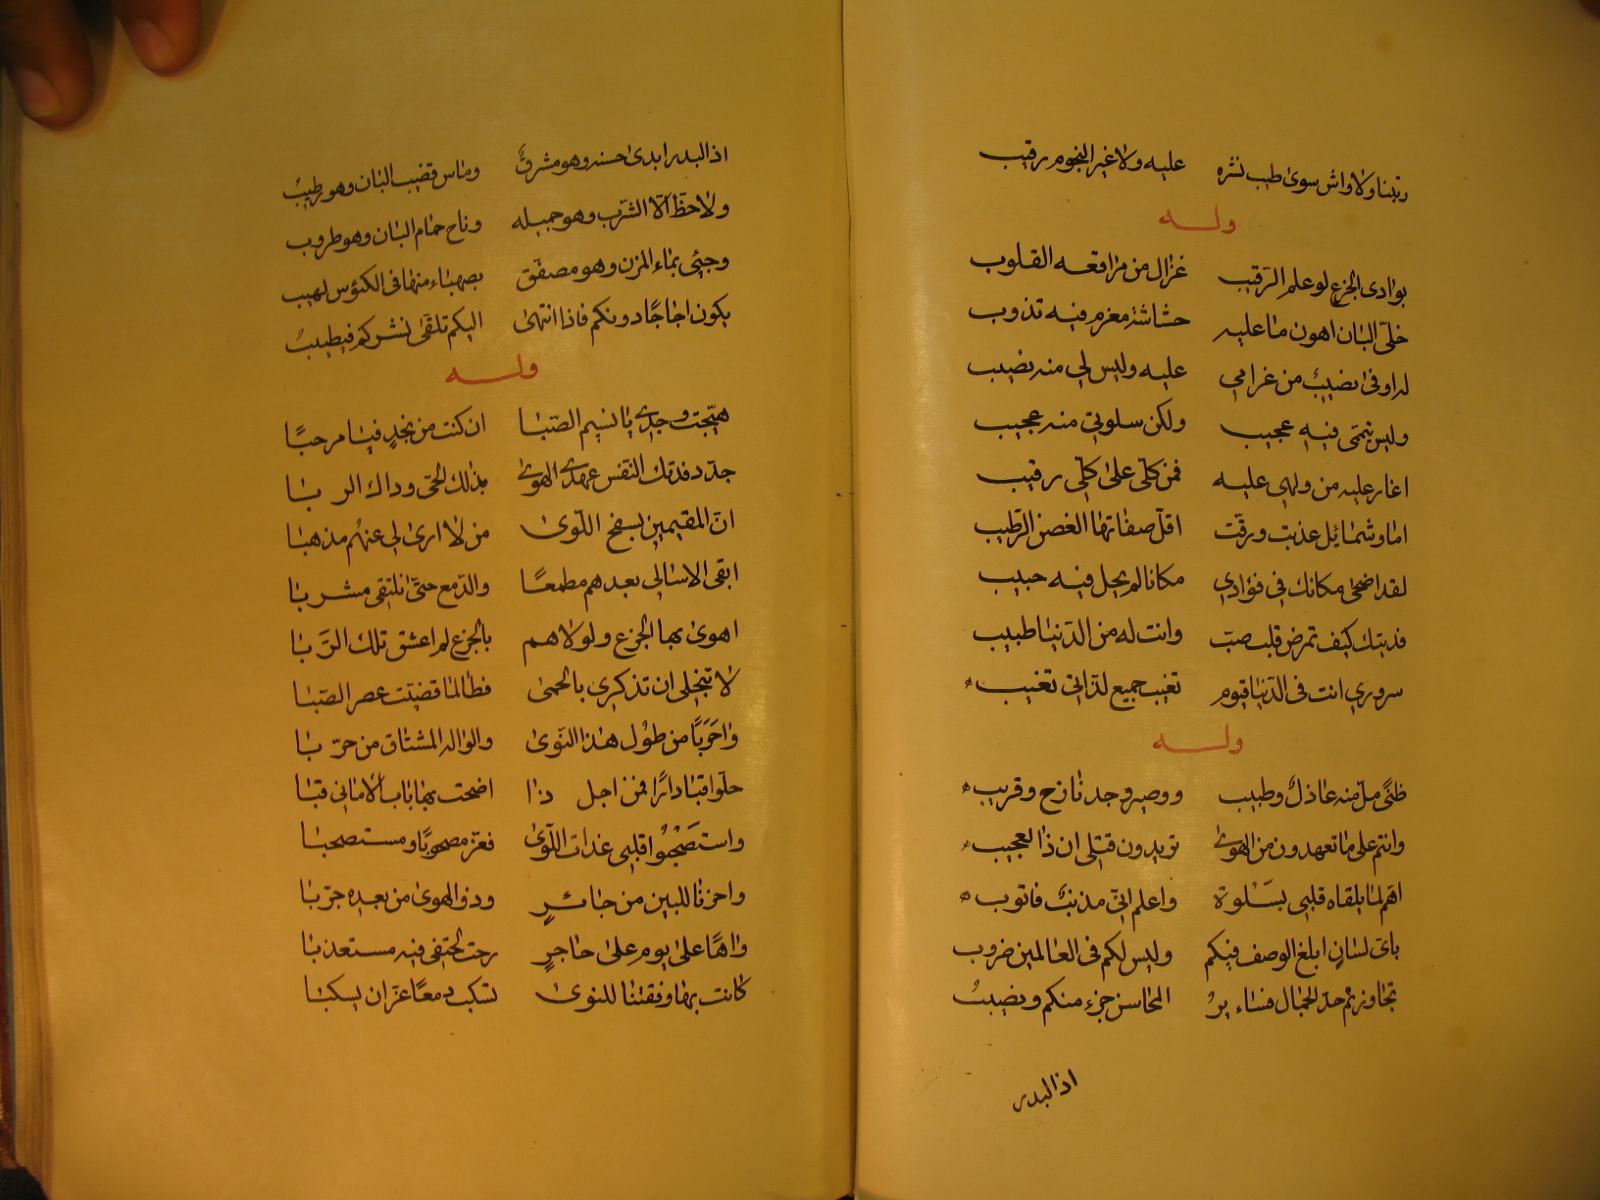 وبتنا ولا واش سوى طيب نشره عليه ولا غير النجوم رقيب
وله
بوادى الجزع لو علم الرقيب غزال من مراقعه القلوب
خلىّ البان اهون ما عليه حشاشة مغرم فيه تذوب
له اوفى نصيبٌ من غرامي عليه وليس لي منه نصيب
وليس تيمّى فيه عجيب ولكن سلوتي منه عجيب
اغار عليه من ولهى عليه فمن كلّى على كلّى رقيب
اما وشمائل عذبت ورقّت اقل صفاتها الغصن الرّطيب
لقد اضحى مكانك في فؤادي مكانا لم يحل فيه حبيب
فديتك كيف تمرض قلب صبّ وانت له من الدّنيا طبيب
سروري انت فى الدّنيا فيوم تغيب جميع لذّاتى تغيب
وله
ظنًى ملّ منه عاذلٌ وطبيب ووصبر وجد نازح وقريب
وانتم على ما تعهدون من الهوى تريدون قتلى ان ذا لعجيب
اهم لما يلقاه قلبى بسَلْوة واعلم انّى مذنبٌ فاتوب
باى لسانٍ ابلغ الوصف فيكم وليس لكم فى العالمين ضروب
تجاوزتم حدّ الجمال فساءير المحاسن جزء منكم ونصيبُ
اذ البدر
اذ البدر ابدى حسنه وهو مشرقٌ وماس قضيب البان وهو رطيبُ
ولاحظ الّا الشّرب وهو جميله وناح حمام البان وهو طروب
وجئى بماء المزن وهو مصفّق بصهباء منها فى الكئوس لهيب
يكون اجاجًا دونكم فاذا انتهى اليكم تلقّى نشركم فيطيبُ
وله
هيّجت وجدي يا نسيم الصّبا ان كنت من نجدٍ فيا مرحبًا
جدّد فدتك النّفس عهدى الهوى بذلك الحىّ وداك الربا
انّ المقيمين بسفح اللّوى من لا ارى لى عنهُم مذهبا
ابقى الاسا لي بعدهم مطمعًا والدّمع حتّى نلتقى مشربا
اهوى بها الجزع ولولاهم بالجزع لم اعشق تلك الرّبا
لا تبخلى ان تذكرى بالحمى فطالما قضيت عصر الصّبا
واحَرَبًا من طُول هذا النّوى والواله المشتاق من حرّبا
حلّوا قبا دارًا فمن اجل ذا اضحت بها باب الأمانى قبا
واستَصْحبُوا قلبى غداة اللّوى فعزّ مصحوبًا ومستصحبا
واحزنا للبين من جائرٍ وذو الهوى من بعده جرّبا
واهًا على يوم على حاجرٍ رحت لحتفى فيه مستعذبا
كانت بها وقفتنا للنوى تسكب دمعًا عزّ ان يسكبا